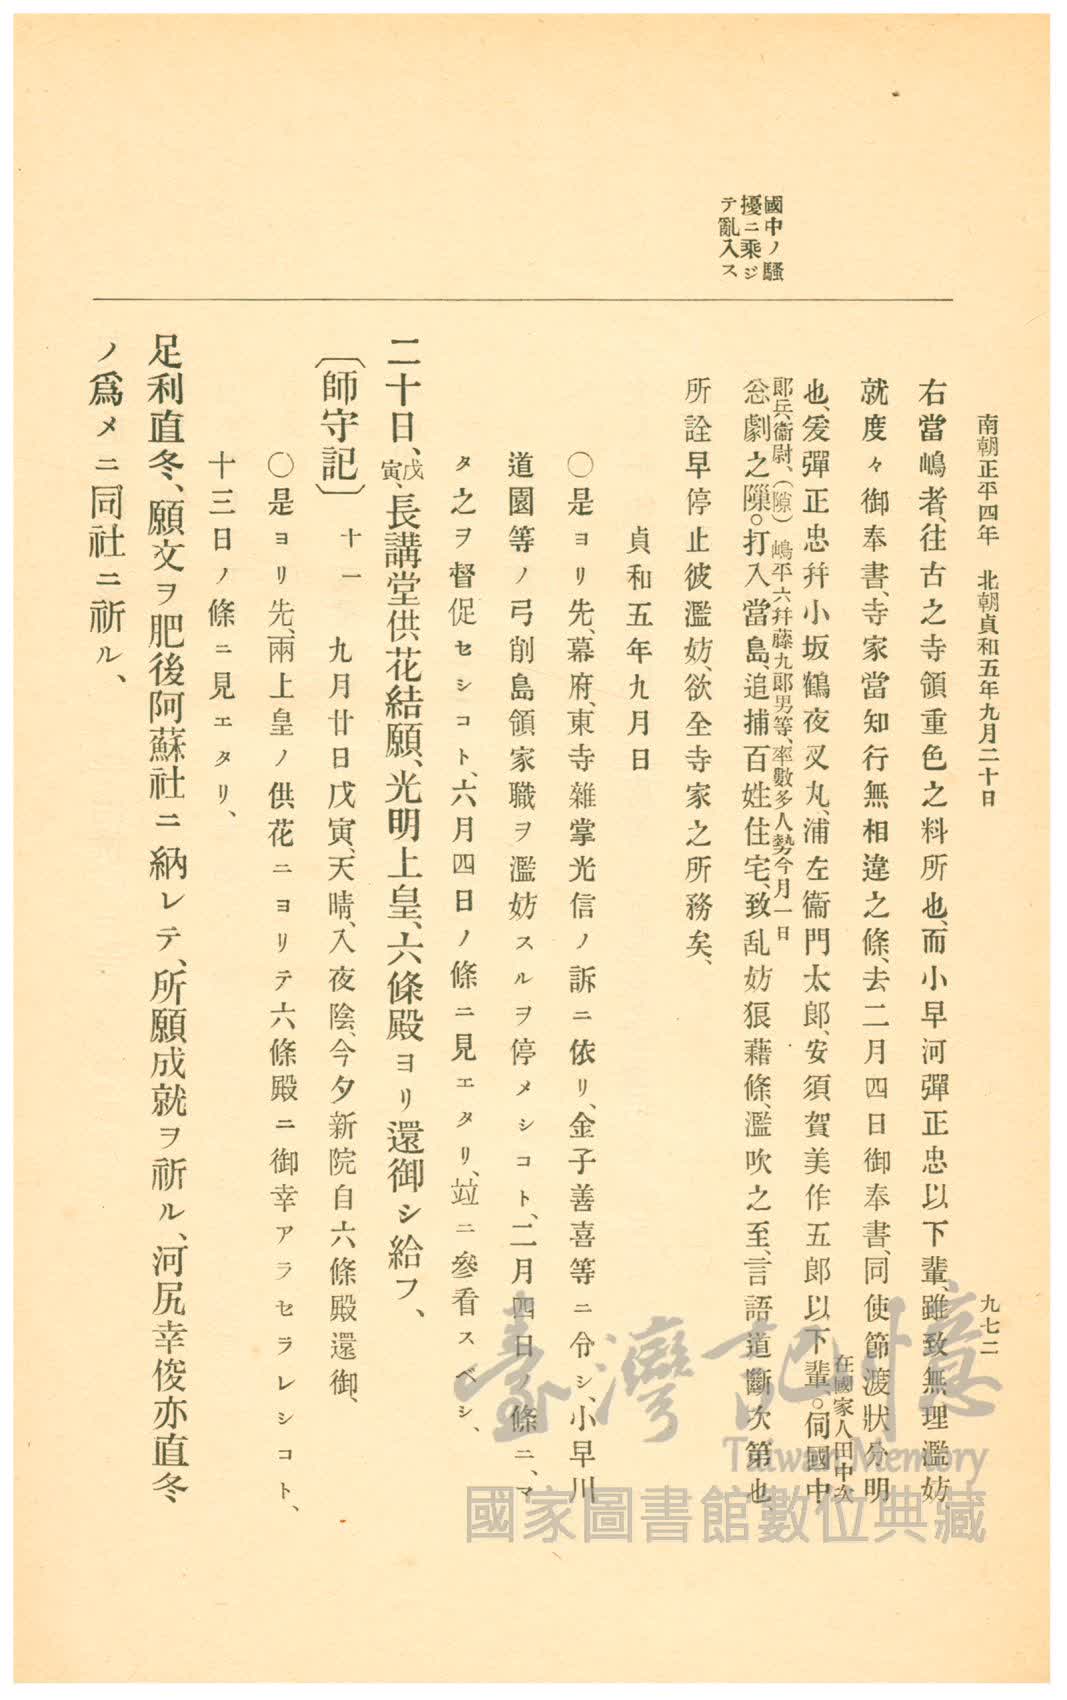 南朝正平四年　北朝貞和五年九月二十日
九七二
國中ノ騷
擾ニ乘ジ
テ亂入ス
右當嶋者、往古之寺領重色之料所也、而小早河彈正忠以下輩、雖致無理濫妨、
就度々御奉書、寺家當知行無相違之條、去二月四日御奉書、同使節渡狀分明
在國家人田中次
也、爰彈正忠幷小坂鶴夜叉丸、浦左衞門太郎、安須賀美作五郎以下輩、○伺國中
郎兵衞尉、（隙）嶋平六幷藤九郎男等、率數多人勢今月一日
忩劇之隟。打入當島、追捕百姓住宅、致乱妨狼藉條、濫吹之至、言語道斷次第也
所詮早停止彼濫妨、欲全寺家之所務矣、
貞和五年九月日
○是ヨリ先、幕府、東寺雜掌光信ノ訴ニ依リ、金子善喜等ニ令シ、小早川
道圓等ノ弓削島領家職ヲ濫妨スルヲ停メシコト、二月四日ノ條ニ、マ
タ之ヲ督促セシコト、六月四日ノ條ニ見エタリ、竝ニ參看スベシ、
二十日、戊寅、長講堂供花結願、光明上皇、六條殿ヨリ還御シ給フ、
〔師守記〕十一　九月廿日戊寅、天晴、入夜陰、今夕新院自六條殿還御、
○是ヨリ先、兩上皇ノ供花ニヨリテ六條殿ニ御幸アラセラレシコト、
十三日ノ條ニ見エタリ、
足利直冬、願文ヲ肥後阿蘇社ニ納レテ、所願成就ヲ祈ル、河尻幸俊亦直冬
ノ爲メニ同社ニ祈ル、
臺灣記憶
Taiwan Memory
國家圖書館數位典藏